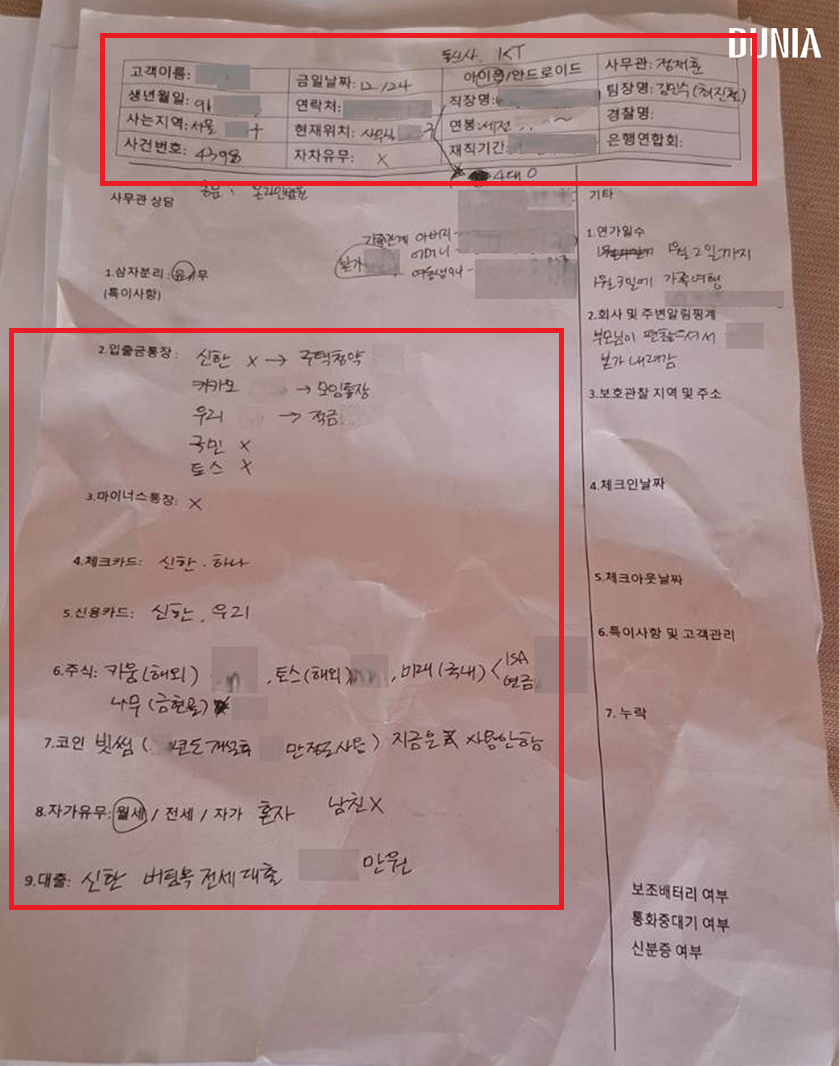 DUNIA
통신사 KT
고객이름: 금일날짜: 12/24 아이폰/안드로이드 사무관: 정재훈
생년월일: 연락처: 직장명: 팀장명: 김민수
사는지역: 서울 현재위치: 연봉: 세전 경찰명:
사건번호: 4398 자차유무: X 재직기간: 은행연합회:
4대 O
사무관 상담
온라인법원
가족관계 아버지
어머니
본가
여동생
1.삼자분리: 유/무
(특이사항)
2.입출금통장: 신한 X → 주택청약
카카오 → 모임통장
우리 → 적금
국민 X
토스 X
3.마이너스통장: X
4.체크카드: 신한. 하나
5.신용카드: 신한, 우리
6.주식: 키움(해외) , 토스(해외) , 미래(국내) < ISA
연금
나무(금현물)
7.코인 빗썸 ( 년도개설후 만정도사용) 지금은 사용안함
8.자가유무: 월세 / 전세 / 자가 혼자 남친X
9.대출: 신한 버팀목전세대출 만원
기타
1.연가일수
1월2일까지
1월3일에 가족여행
2.회사 및 주변알림핑계
부모님이 편찮으셔서
본가 내려감
3.보호관찰 지역 및 주소
4.체크인날짜
5.체크아웃날짜
6.특이사항 및 고객관리
7. 누락
보조배터리 여부
통화중대기 여부
신분증 여부